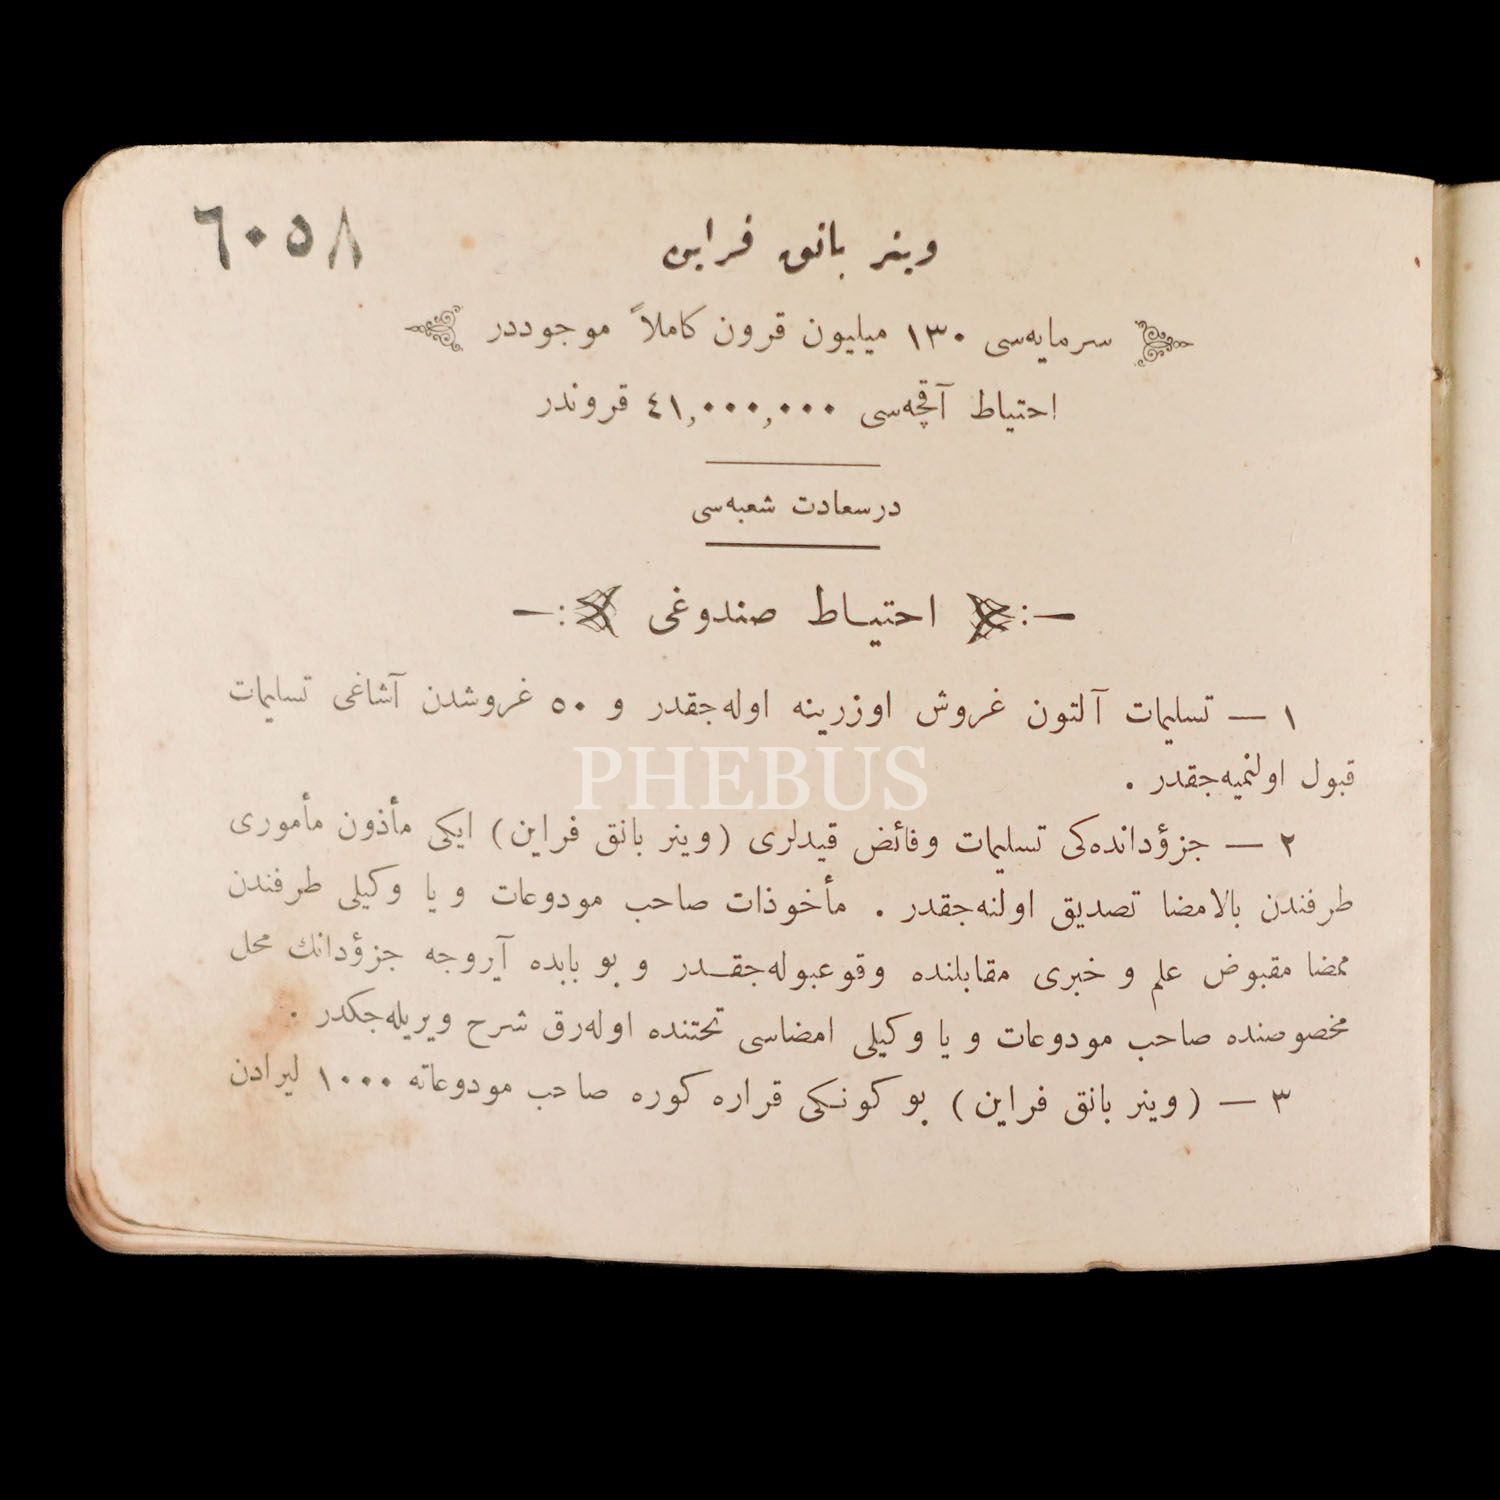 ٦٠٥٨
وينر بانق فراين
سرمايه‌سی ١٣٠ ميليون قرون كاملاً موجوددر
احتياط آقچه‌سی ٤١,٠٠٠,٠٠٠ قروندر
درسعادت شعبه‌سی
—: احتيـاط صندوغی :—
١ — تسليمات آلتون غروش اوزرينه اوله‌جقدر و ٥٠ غروشدن آشاغی تسليمات
قبول اولنميه‌جقدر .
PHEBUS
٢ — جزؤدانده‌كی تسليمات وفائض قيدلری (وينر بانق فراين) ايكی مأذون مأموری
طرفندن بالامضا تصديق اولنه‌جقدر . مأخوذات صاحب مودوعات و يا وكيلی طرفندن
ممضا مقبوض علم و خبری مقابلنده وقوعبوله‌جقـدر و بو بابده آيروجه جزؤدانك محل
مخصوصنده صاحب مودوعات و يا وكيلی امضاسی تحتنده اوله‌رق شرح ويريله‌جكدر .
٣ — (وينر بانق فراين) بو كونـكی قراره كوره صاحب مودوعاته ١٠٠٠ ليرادن